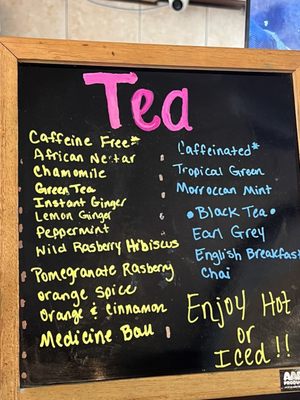 Tea
Caffeine Free*
African Nectar
Chamomile
Green Tea
Instant Ginger
Lemon Ginger
Peppermint
Wild Rasberry Hribiscus
Pomegranate Rasberry
orange Spice
Orange & Cinnamon
Medicine Ball
Caffeinated*
Tropical Green
Morroccan Mint
• Black Tea •
Earl Grey
English Breakfast
Chai
Enjoy Hot
or
Iced!!